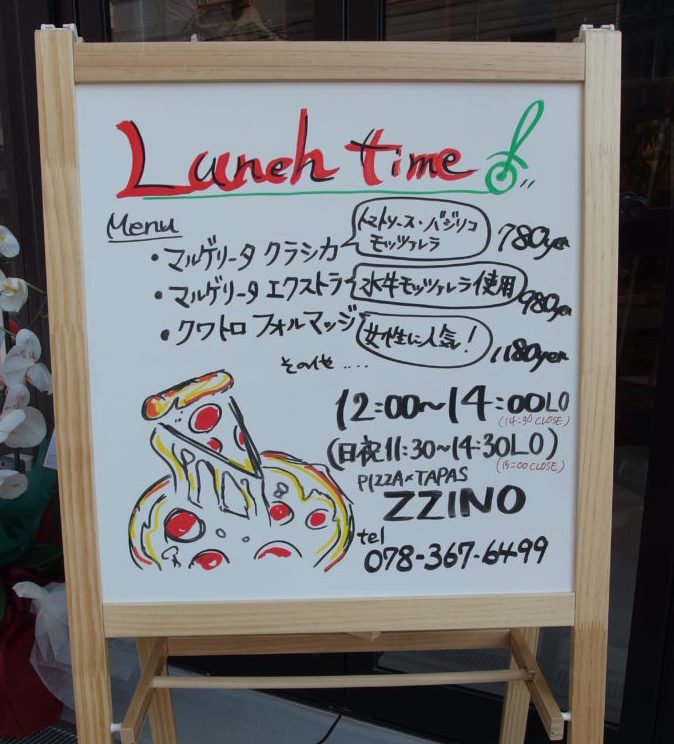 Lunch time
Menu
・マルゲリータ クラシカ
トマトソース・バジリコ
モッツァレラ
780yen
・マルゲリータ エクストラ
水牛モッツァレラ使用
980yen
・クワトロ フォルマッジ
女性に人気!
1180yen
その他....
12:00~14:00LO
(14:30 CLOSE)
(日祝11:30~14:30LO)
(15:00CLOSE)
PIZZA×TAPAS
ZZINO
tel
078-367-6499